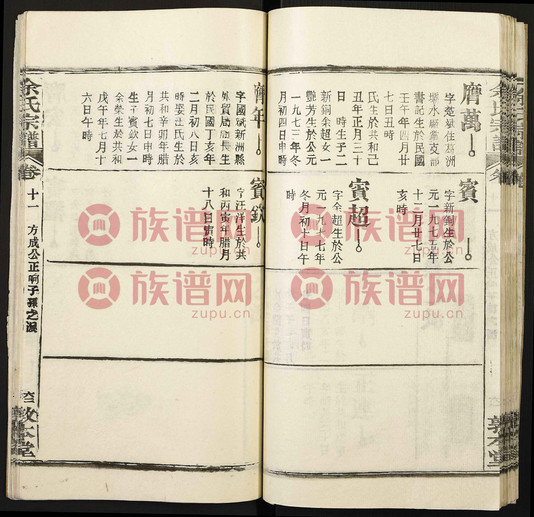 齊萬
字楚斌住葛洲
壩水廠黨支部
書記生於民國
壬午年四月廿
七日丑時
氏生於共和己
丑年正月三十
日時生子二
新銅余超女一
艷芳生於公元
一九七三年冬
月初四日申時
賓
字新銅生於公
元一九七五年
十二月廿七日
亥時
賓超
字余超生於公
元一九七七年
冬月初十日午
時
齊年
字國斌新洲縣
外貿局局長生
於民國丁亥年
二月初八日亥
時娶汪氏生於
共和辛卯年腊
月初七日申時
生子賓欽女一
余榮生於共和
戊午年七月十
六日午時
賓欽
字汪洋生於共
和丙寅年腊月
十八日寅時
余氏宗譜
卷
十一
方成公正响子孫之派
敦本堂
族谱网
zupu.cn
族谱网
zupu.cn
族谱网
zupu.cn
族谱网
zupu.cn